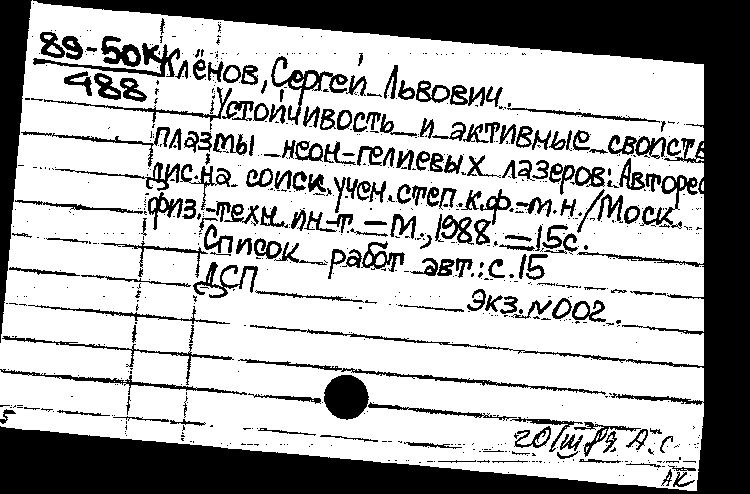 89-50К
488
Клёнов, Сергей Львович.
Устойчивость и активные свойств
плазмы неон-гелиевых лазеров: Авторе
дис. на соиск. учен. степ. к.ф.-м.н. / Моск.
физ.-техн. ин-т. — М., 1988. — 15с.
Список работ авт.: с. 15
ДСП
Экз. N 002.
20/III 89. А.С.
АК
5